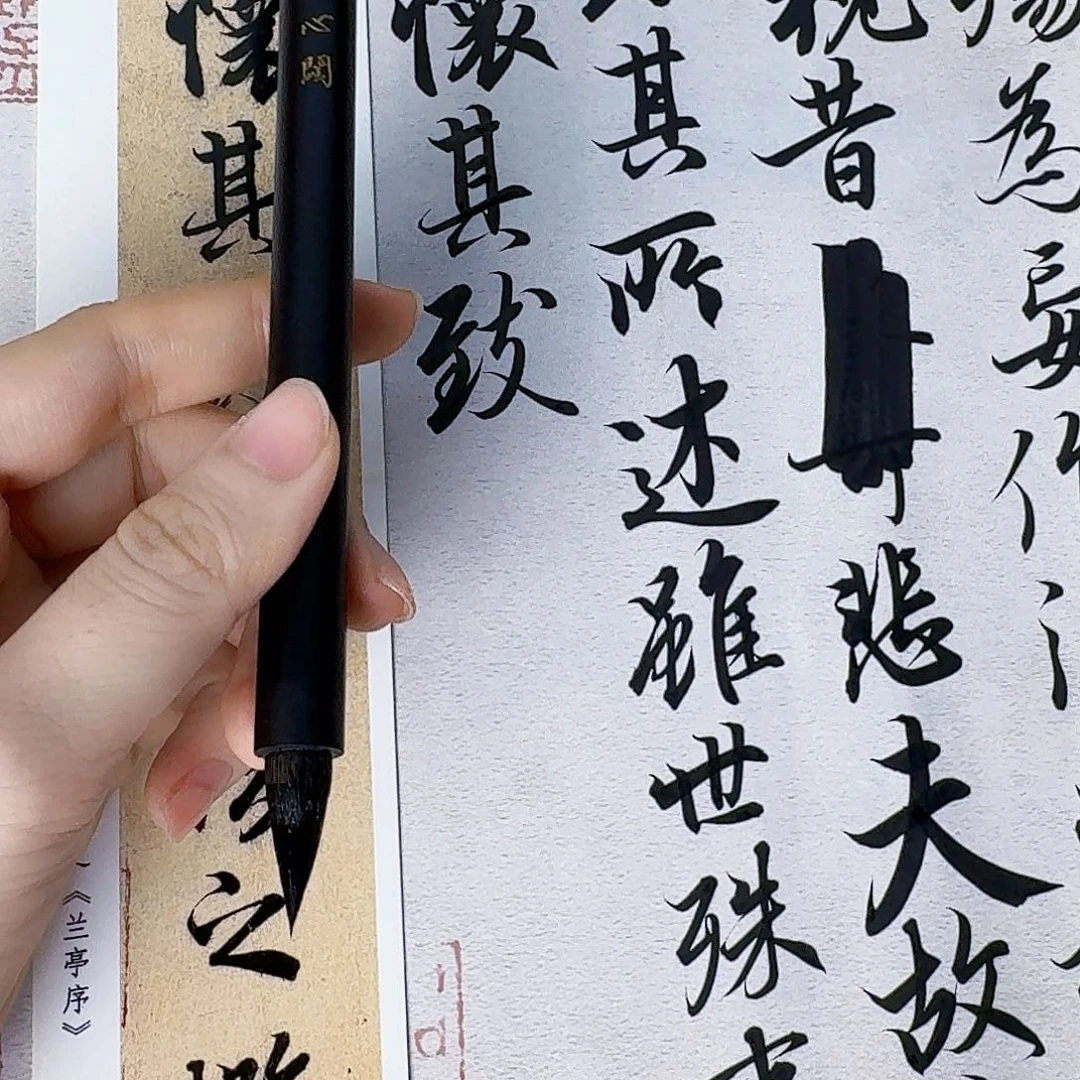 殤為妄作
視昔悲夫故
其所述雖世殊事
懷其致
懷其
之攬
《兰亭序》